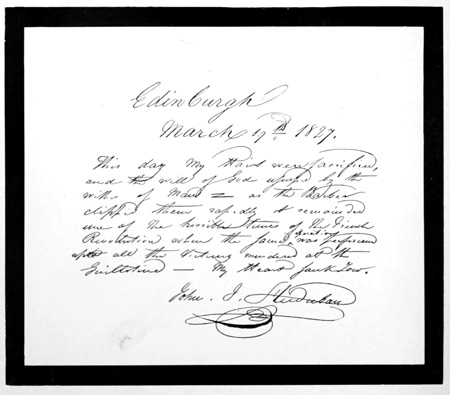 Edinburgh
March 19th 1827.
This day My Hairs were sacrificed,
and the will of God usurped by the
wishes of Man = as the Barber
clipped them rapidly it reminded
me of the horrible times of the French
Revolution when the same operation was performed
upon all the Victims murdered at the
Guillotine — My Heart sank low.
John. J. Audubon